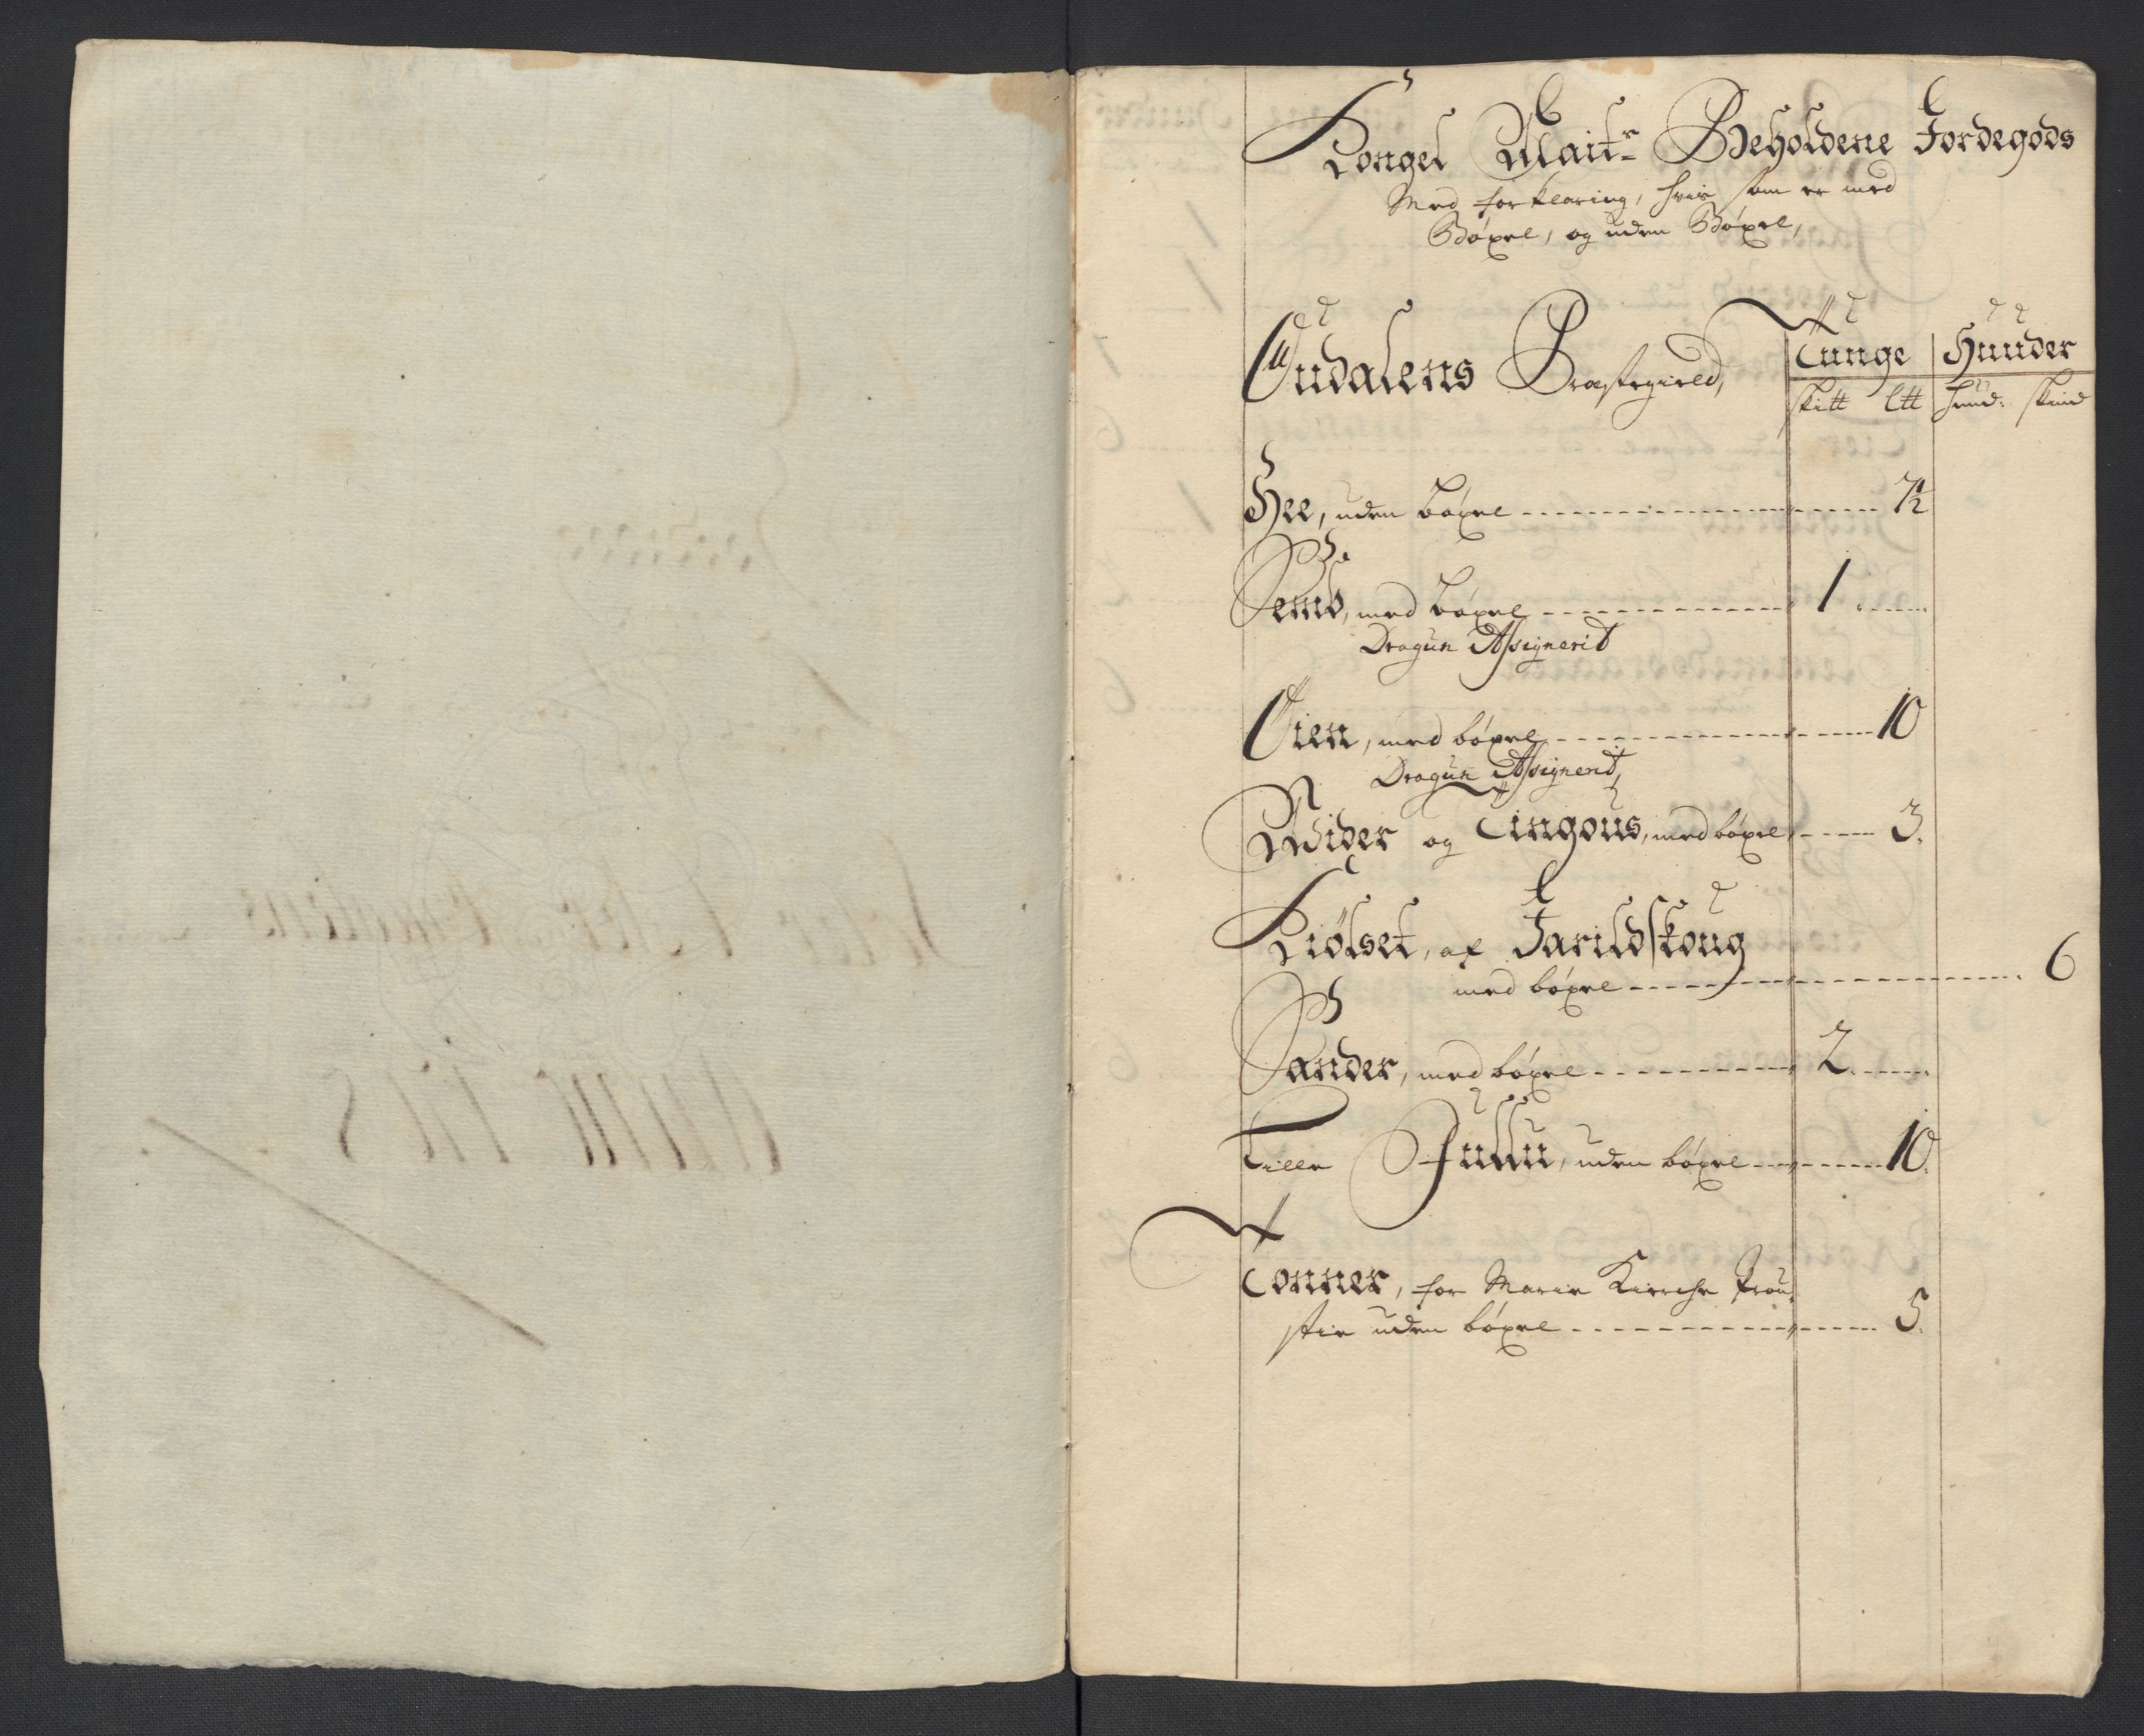 Kongel Maitz Beholdene Jordegods
Med forklaring, hvis som er med
Böxel, og uden Böxel,
Oudalens Præstegield, Tunge Huuder
skitt ltt huud: skind
Hee, uden böxel 7½
Semb, med böxel 1
Dragun Assignerit
Öien, med böxel 10
Dragun Assignerit,
Rwider og Tingous, med böxel 3.
Kiölset, af Jarildskoug
med böxel 6
Sander, med böxel 2
Lille Jullu, uden böxel 10.
Tonner, for Marie Kirche Prou-
stie uden böxel 5.